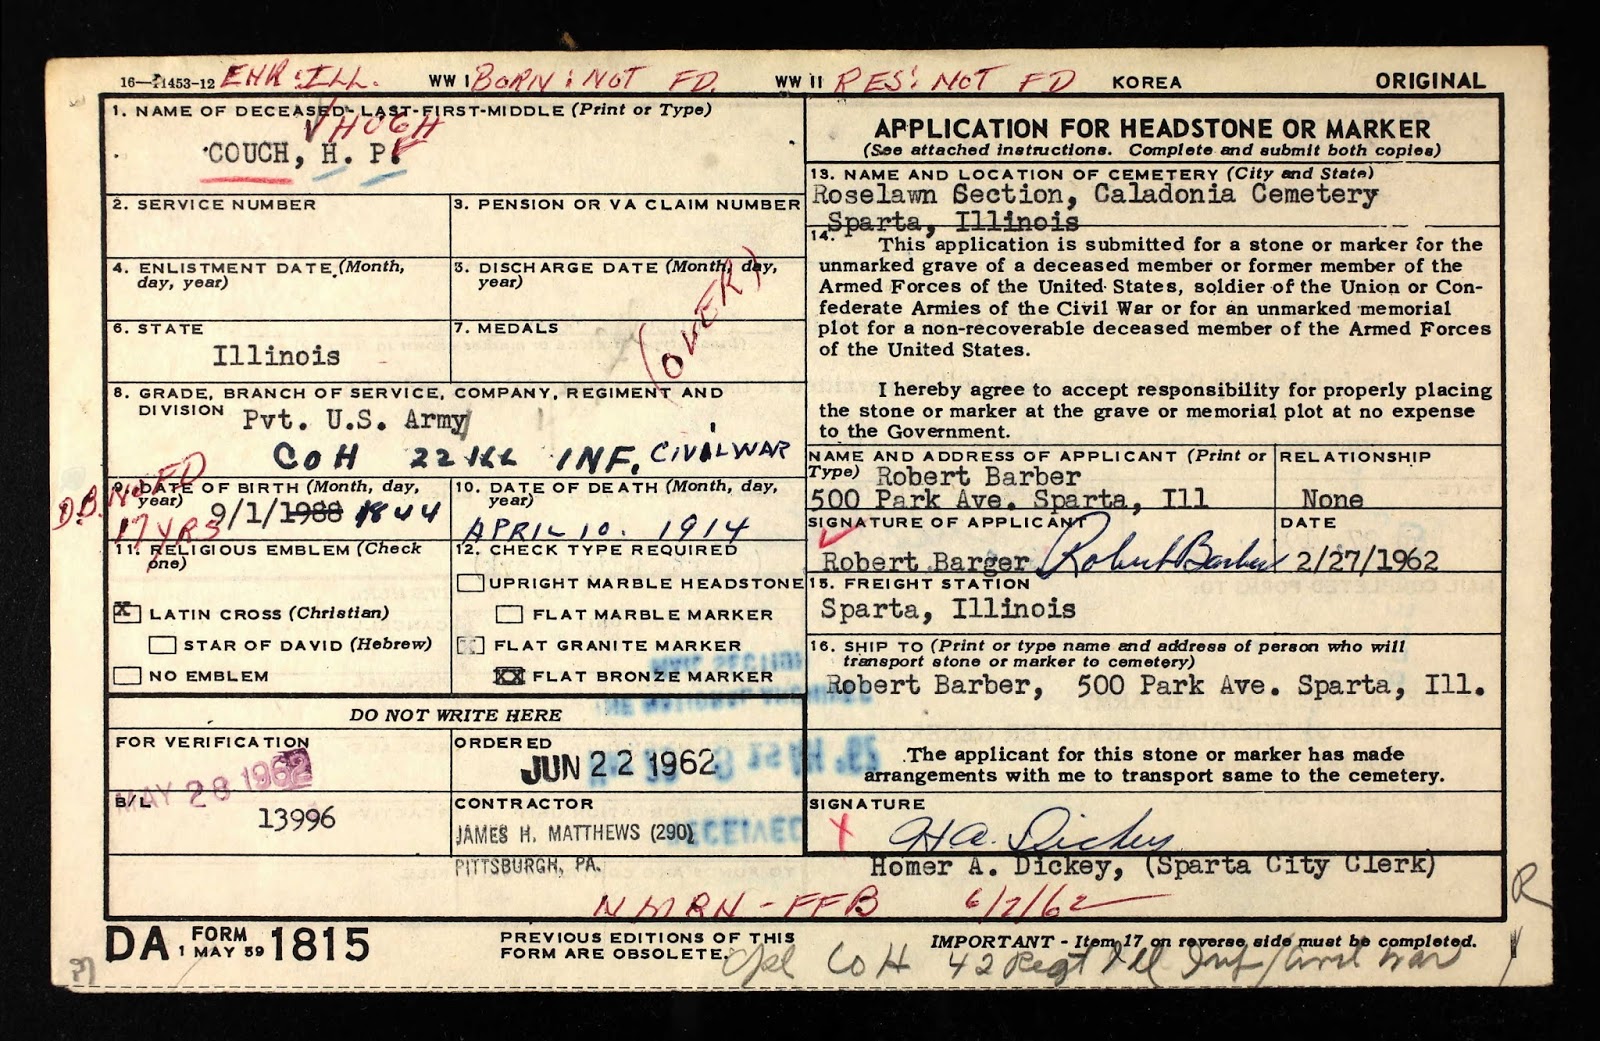 16—41453-12 ENR: ILL. WW I BORN: NOT FD. WW II RES: NOT FD KOREA ORIGINAL
1. NAME OF DECEASED-LAST-FIRST-MIDDLE (Print or Type)
HUGH
COUCH, H. P.
2. SERVICE NUMBER
3. PENSION OR VA CLAIM NUMBER
4. ENLISTMENT DATE (Month,
day, year)
5. DISCHARGE DATE (Month, day,
year)
(OVER)
6. STATE
Illinois
7. MEDALS
8. GRADE, BRANCH OF SERVICE, COMPANY, REGIMENT AND
DIVISION Pvt. U.S. Army
CO H 22 ILL INF. CIVIL WAR
D.B. NOT FD
17 YRS
9. DATE OF BIRTH (Month, day,
year) 9/1/1988 1844
10. DATE OF DEATH (Month, day,
year)
APRIL 10. 1914
11. RELIGIOUS EMBLEM (Check
one)
X LATIN CROSS (Christian)
STAR OF DAVID (Hebrew)
NO EMBLEM
12. CHECK TYPE REQUIRED
UPRIGHT MARBLE HEADSTONE
FLAT MARBLE MARKER
FLAT GRANITE MARKER
XX FLAT BRONZE MARKER
DO NOT WRITE HERE
FOR VERIFICATION
MAY 28 1962
ORDERED
JUN 22 1962
B/L
13996
CONTRACTOR
JAMES H. MATTHEWS (290)
PITTSBURGH, PA.
RECEIVED
APPLICATION FOR HEADSTONE OR MARKER
(See attached instructions. Complete and submit both copies)
13. NAME AND LOCATION OF CEMETERY (City and State)
Roselawn Section, Caladonia Cemetery
Sparta, Illinois
14. This application is submitted for a stone or marker for the
unmarked grave of a deceased member or former member of the
Armed Forces of the United States, soldier of the Union or Con-
federate Armies of the Civil War or for an unmarked memorial
plot for a non-recoverable deceased member of the Armed Forces
of the United States.
I hereby agree to accept responsibility for properly placing
the stone or marker at the grave or memorial plot at no expense
to the Government.
NAME AND ADDRESS OF APPLICANT (Print or
Type) Robert Barber
500 Park Ave. Sparta, Ill
RELATIONSHIP
None
SIGNATURE OF APPLICANT
Robert Barger Robert Barber
DATE
2/27/1962
15. FREIGHT STATION
Sparta, Illinois
16. SHIP TO (Print or type name and address of person who will
transport stone or marker to cemetery)
Robert Barber, 500 Park Ave. Sparta, Ill.
The applicant for this stone or marker has made
arrangements with me to transport same to the cemetery.
SIGNATURE
X H A. Dickey
Homer A. Dickey, (Sparta City Clerk)
NMRN - FFB 6/7/62
R
DA FORM 1 MAY 59 1815
PREVIOUS EDITIONS OF THIS
FORM ARE OBSOLETE.
IMPORTANT - Item 17 on reverse side must be completed.
Cpl Co H 42 Regt Ill Inf/Civil War